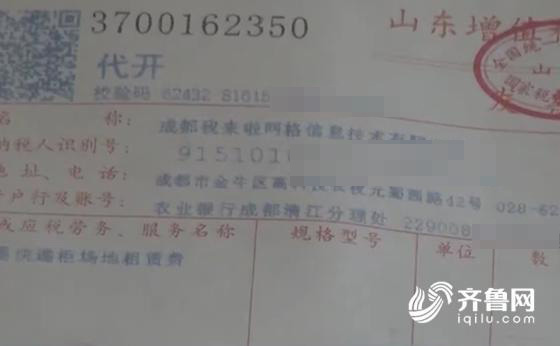 3700162350
山东增值
代开
校验码 62432 81615
全国统一
山
国家税务
称：
成都我来啦网格信息技术有限
纳税人识别号：
9151010
地址、电话：
成都市金牛区高科技 蜀西路42号 028-62
开户行及账号：
农业银行成都清江分理处 229008
或应税劳务、服务名称
规格型号
单位
数
快递柜场地租赁费
齐鲁网
iqilu.com